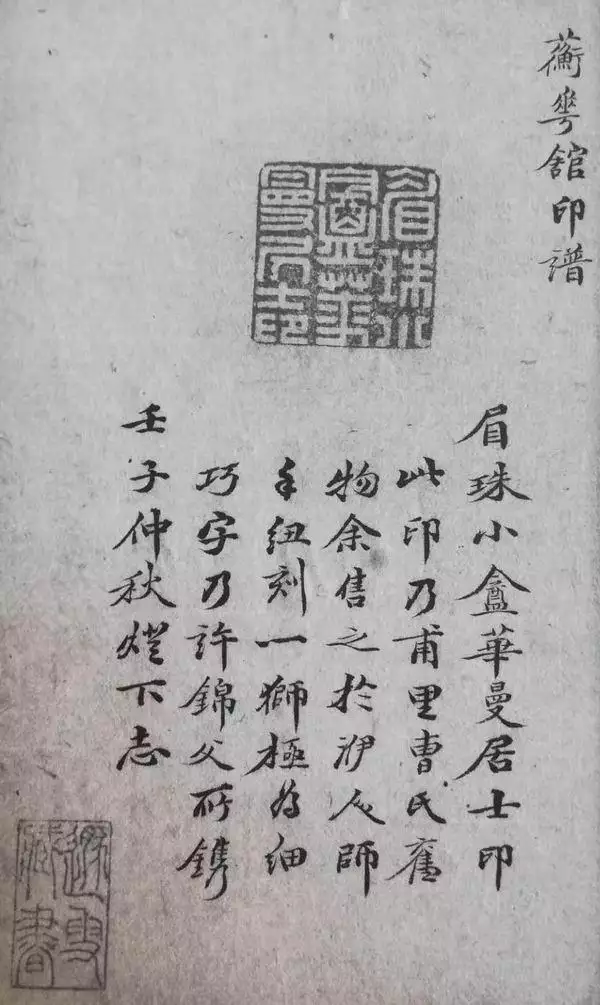 蘅華舘印譜
眉珠小
盦華
曼居士印
眉珠小盦華曼居士印
此印乃甫里曹氏舊
物余售之於師
手紐刻一獅極為細
巧字乃許錦父所鐫
壬子仲秋燈下志
遯叟
藏書